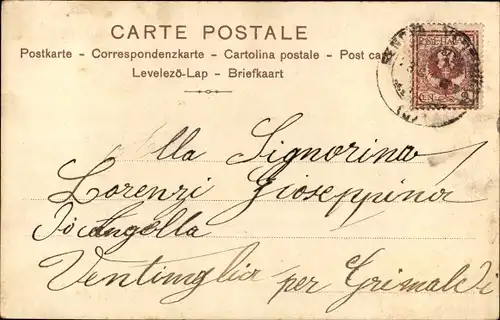 CARTE POSTALE
Postkarte - Correspondenzkarte - Cartolina postale - Post ca
Levelezö-Lap - Briefkaart
Alla Signorina
Lorenzi Gioseppina
Ventimiglia per Grimaldi